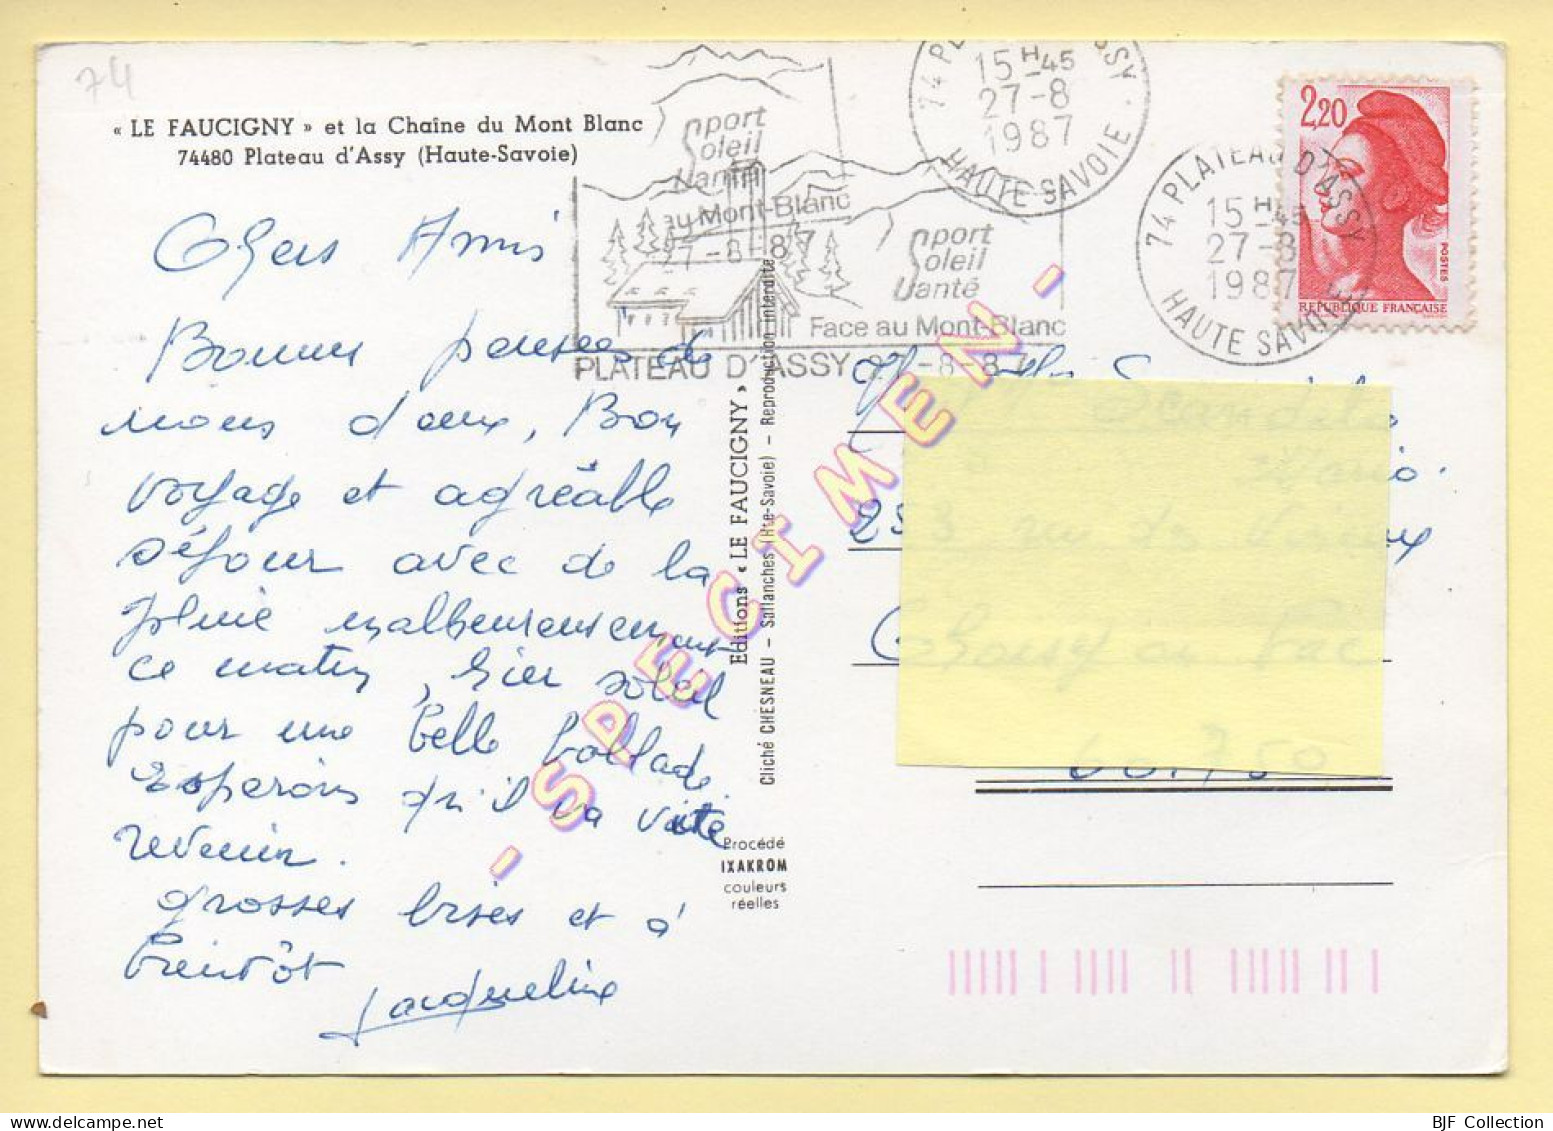 74
« LE FAUCIGNY » et la Chaîne du Mont Blanc
74480 Plateau d'Assy (Haute-Savoie)
Chers Amis
Bonnes pensées de
nous deux, Bon
voyage et agréable
séjour avec de la
pluie malheureusement
ce matin, hier soleil
pour une belle ballade.
Espérons qu'il va vite
revenir.
grosses bises et à
bientôt
Jacqueline
Sport
Soleil
Santé
au Mont-Blanc
27-8-87
Sport
Soleil
Santé
Face au Mont-Blanc
PLATEAU D'ASSY 27-8-87
15 H 45
27-8
1987
HAUTE SAVOIE
74 PLATEAU D'ASSY
15 H 45
27-8
1987
HAUTE SAVOIE
2,20
POSTES
REPUBLIQUE FRANÇAISE
Editions « LE FAUCIGNY »
Cliché CHESNEAU - Sallanches (Hte-Savoie) - Reproduction interdite
- SPECIMEN -
Procédé
IXAKROM
couleurs
réelles
60.750
BJF Collection